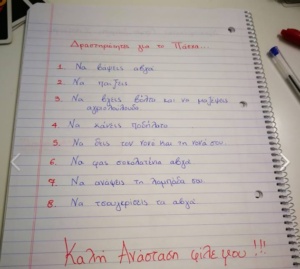 Δραστηριότητες για το Πάσχα...
1. Να βάψεις αβγά
2. Να παίξεις
3. Να βγεις βόλτα και να μαζέψεις
αγριολούλουδα
4. Να κάνεις ποδήλατο
5. Να δεις τον νονό και τη νονά σου
6. Να φας σοκολατένια αβγά
7. Να ανάψεις τη λαμπάδα σου
8. Να τσουγκρίσεις τα αβγά
Καλή Ανάσταση φίλε μου !!!